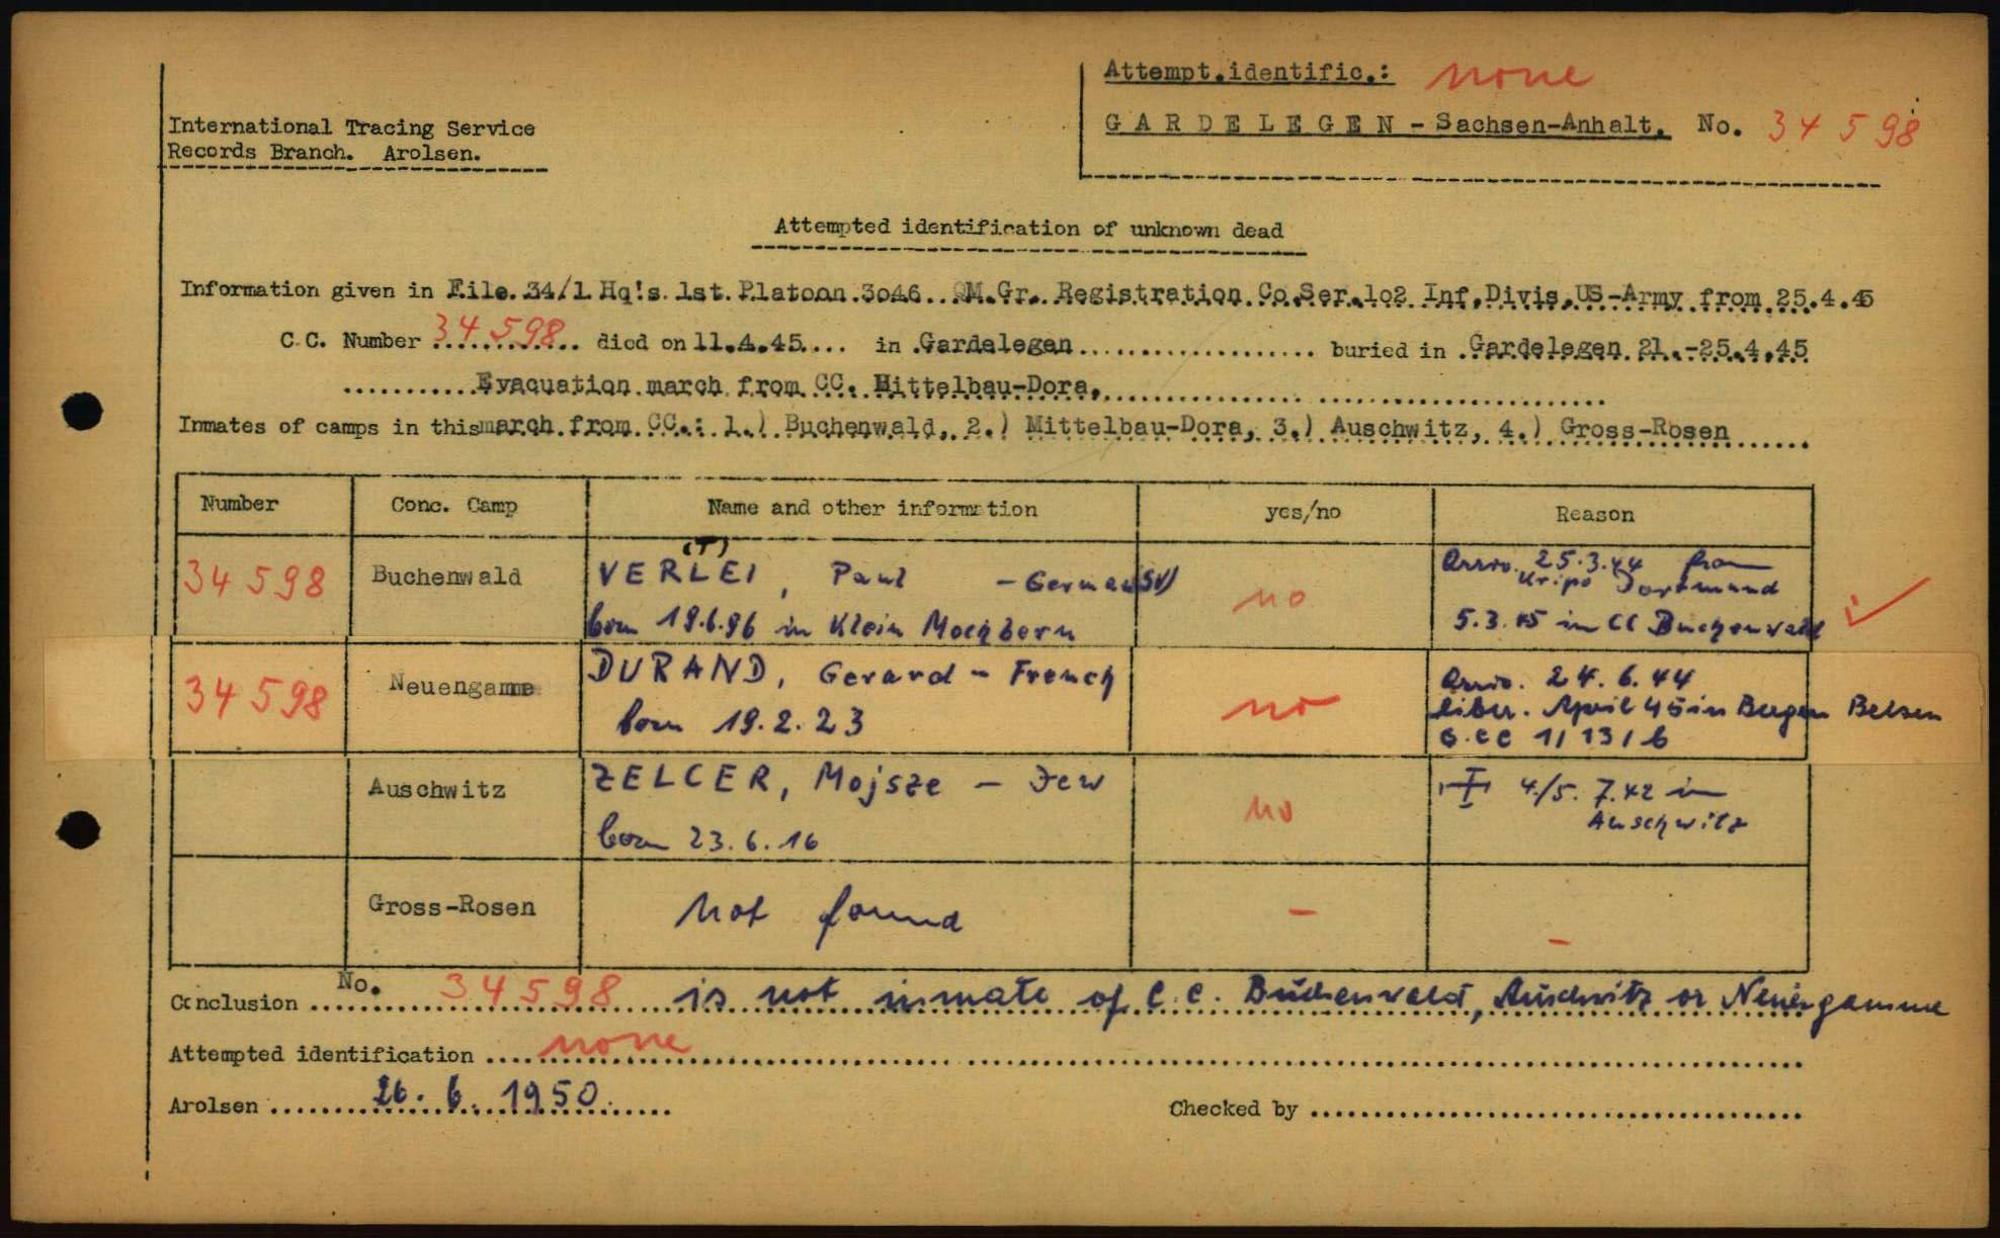 Attempt.identific.: none
GARDELEGEN - Sachsen-Anhalt. No. 34 598
International Tracing Service
Records Branch. Arolsen.
Attempted identification of unknown dead
Information given in File.34/1 Hq's.1st.Platoon.3046..QM.Gr..Registration.Co.Ser.102 Inf.Divis.US-Army from 25.4.45
C.C. Number 34 598 died on 11.4.45.... in .Gardelegen.................... buried in .Gardelegen 21.-25.4.45
...........Evacuation.march from CC. Mittelbau-Dora.
Inmates of camps in this march.from.CC.: 1.) Buchenwald, 2.) Mittelbau-Dora, 3.) Auschwitz, 4.) Gross-Rosen......
Number Conc. Camp Name and other information yes/no Reason
34 598 Buchenwald VERLEI (T), Paul - German SV) no Arriv. 25.3.44 from
Kripo Dortmund
born 19.6.96 in Klein Mochbern 5.3.45 in CC Buchenwald
34 598 Neuengamme DURAND, Gerard - French no Arriv. 24.6.44
born 19.2.23 liber. April 45 in Bergen Belsen
O.CC 1/13/6
Auschwitz ZELCER, Mojsze - Jew no 4./5.7.42 in
Auschwitz
born 23.6.16
Gross-Rosen not found - -
Conclusion No. 34598 is not inmate of C.C. Buchenwald, Auschwitz or Neuengamme
Attempted identification .... none
Arolsen 26. 6. 1950
Checked by